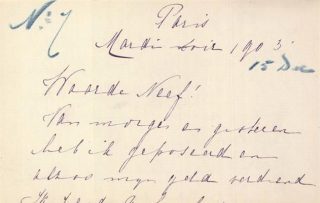 No 7
Paris
Mardi soir 1903
15 Dec
Waarde Neef!
Van morgen en gisteren
heb ik geposeerd en
alzoo mijn geld verdiend